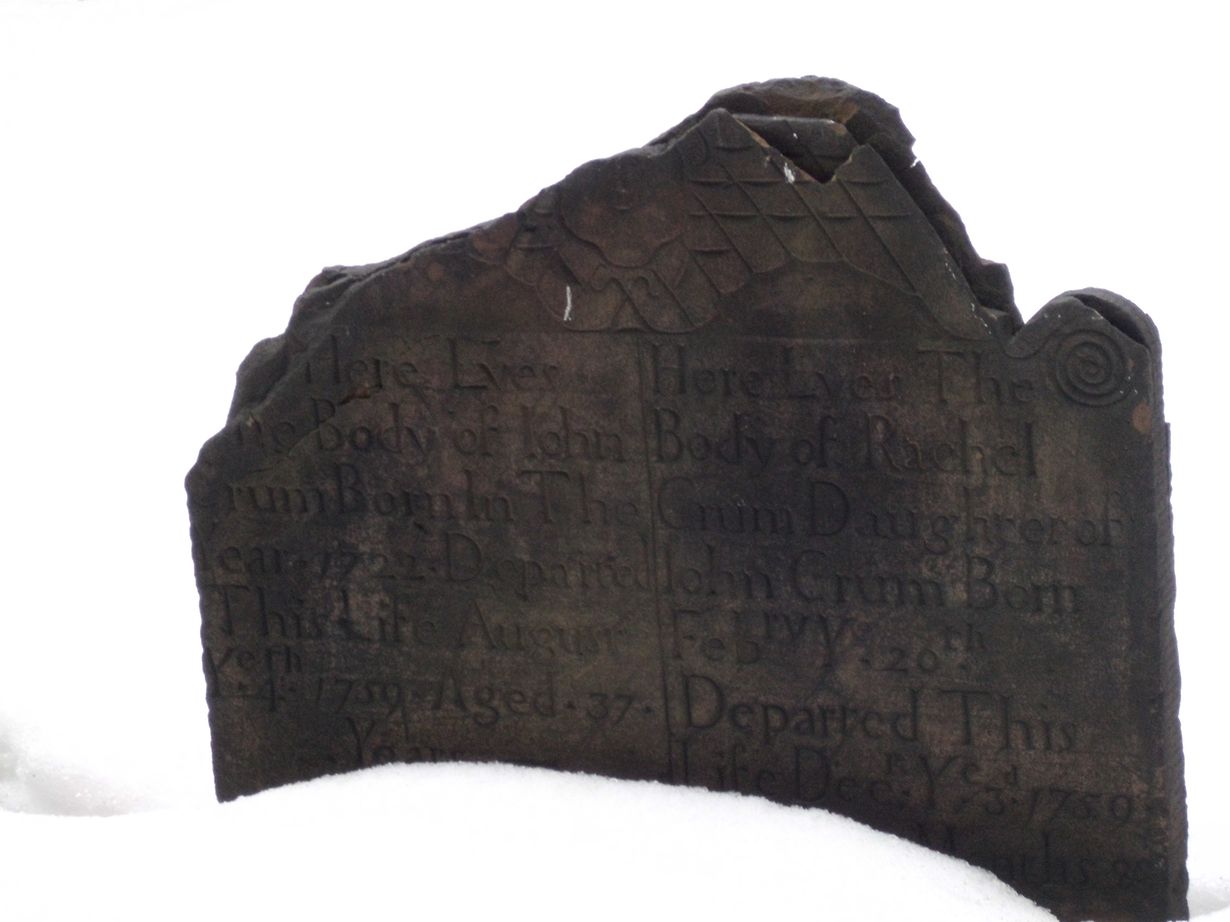 Here Lyes
the Body of Iohn
Crum Born In The
Year · 1722 · Departed
This Life August
Yᵉ · 4ᵗʰ · 1759 · Aged · 37 ·
Years
Here Lyes The
Body of Rachel
Crum Daughter of
Iohn Crum Born
Febʳʸ Yᵉ · 20ᵗʰ ·
Departed This
Life Decʳ · Yᵉ · 3ᵈ · 1759 ·
Months